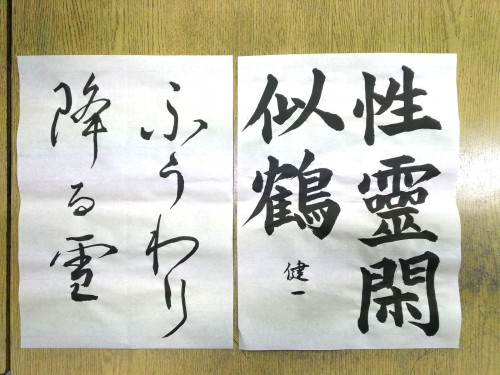 性靈閑
似鶴
健一
ふうわり
降る雪